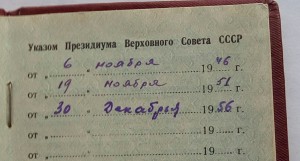 Указом Президиума Верховного Совета СССР
от „ 6 " ноября 1946
от „ 19 " ноября 1951
от „ 30 " Декабря 1956
от „ " 19
от „ " 19